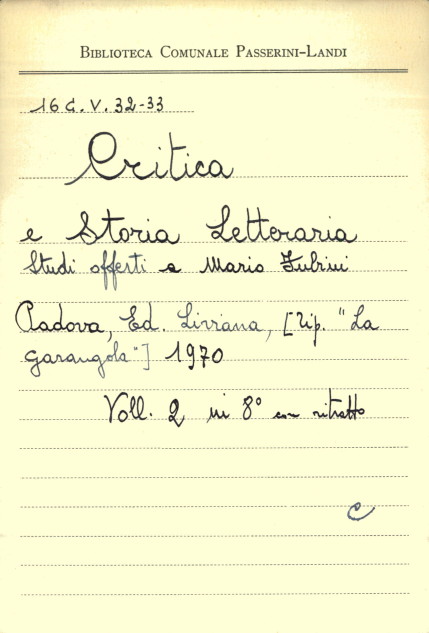 BIBLIOTECA COMUNALE PASSERINI-LANDI
16 G. V. 32-33
Critica
e Storia Letteraria
Studi offerti a Mario Fubini
Padova, Ed. Liviana, [Tip. "La
Garangola"] 1970
Voll. 2 in 8° con ritratto
C